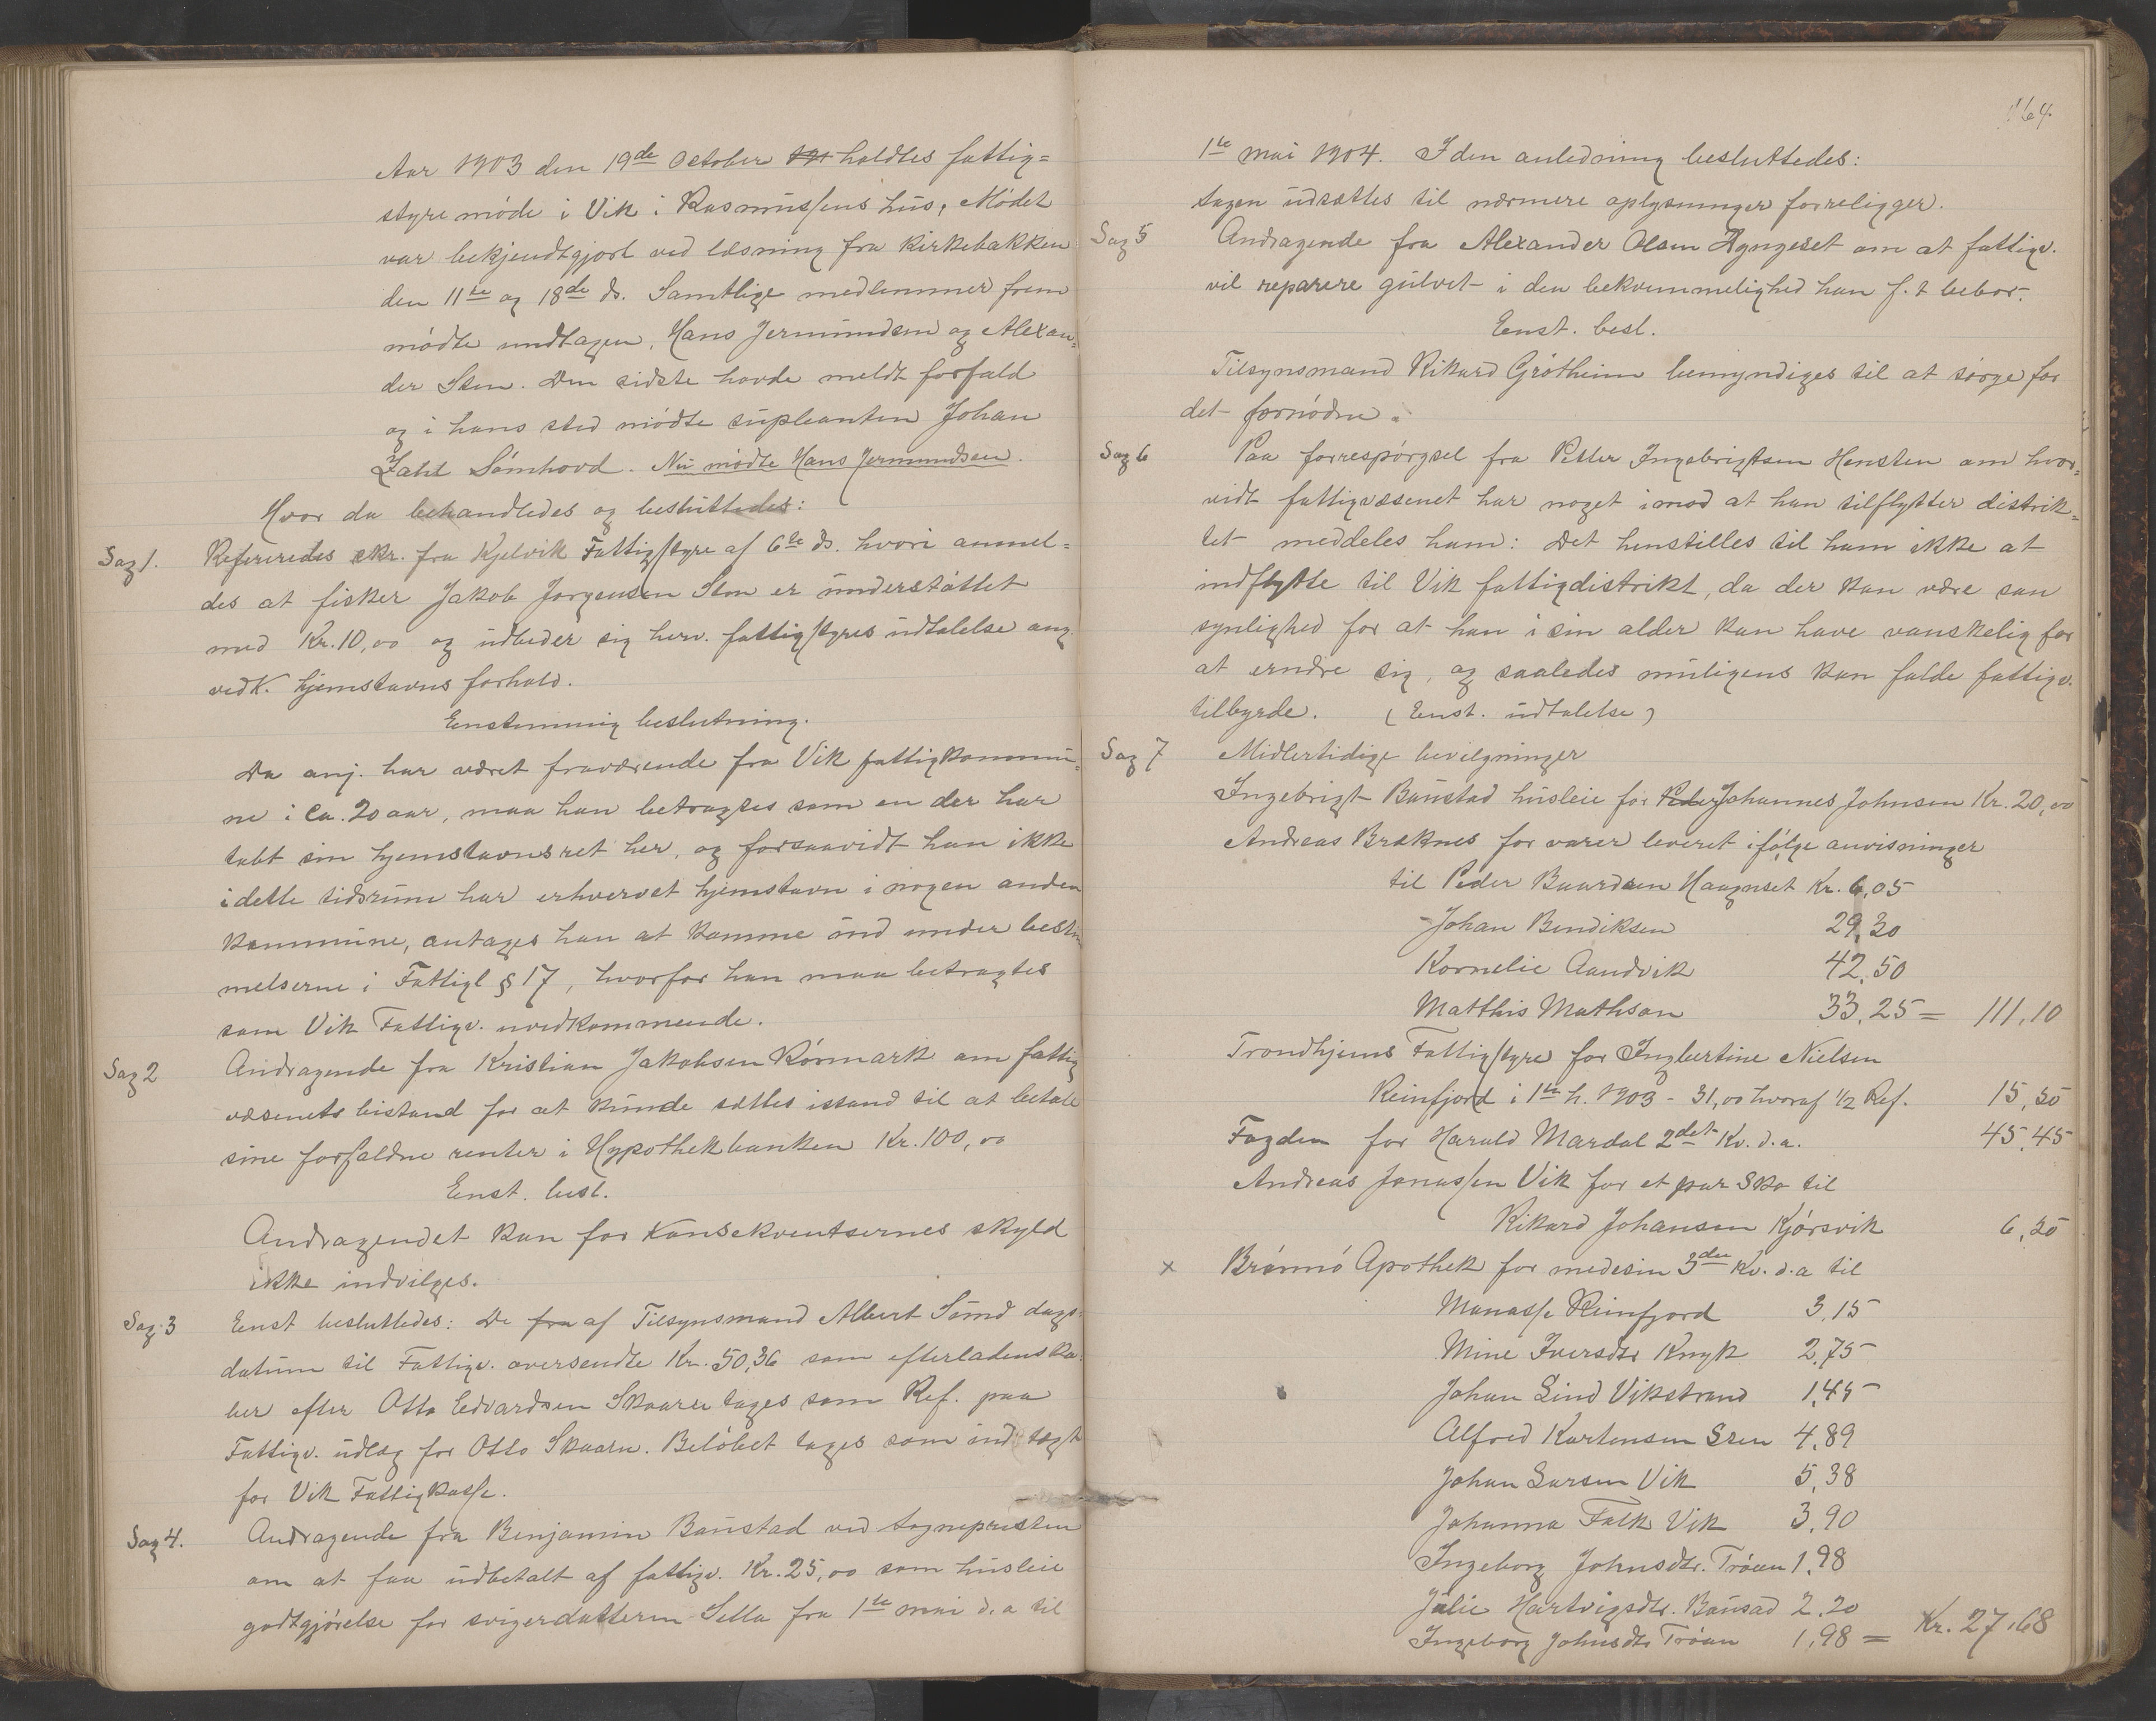 Aar 1903 den 19de October 191 holdtes fattig=
styremöde i Vik i Rasmussens hus, Mödet
var bekjendtgjort ved læsning fra Kirkebakken
den 11te og 18de ds. Samtlige medlemmer frem
mödte undtagen, Hans Jermundsen og Alexan=
der Sten. Den sidste havde meldt forfald
og i hans sted mödte supleanten Johan
Zahl Sömhovd. Nu mödte Hans Jermundsen.
Hvor da behandledes og besluttedes:
Sag 1. Refereredes skr. fra Kjelvik Fattigstyre af 6te ds. hvori anmel=
des at fisker Jakob Jorgensen Sten er understöttet
med Kr. 10,00 og udbeder sig herv. fattigstyres udtalelse ang.
vedk. hjemstavns forhold.
Enstemmig beslutning.
Da anj. har været fraværende fra Vik fattigkommu=
ne i Ca. 20 aar, maa han betragtes som en der har
tabt sin hjemstavnsret her, og forsaavidt han ikke
i dette tidsrum har erhvervet hjemstavn i nogen anden
kommune, antages han at komme ind under bestem
melserne i Fattigl § 17, hvorfor han maa betragtes
som Vik Fattigv. uvedkommende.
Sag 2 Andragende fra Kristian Jakobsen Rörmark om fattig
væsenets bistand for at kunde sættes istand til at betale
sine forfaldne renter i Hypothekbanken Kr. 100,00
Enst. besl.
Andragendet kan for Konsekventsernes skyld
ikke indvilges.
Sag 3 Enst besluttedes: De fra af Tilsynsmand Albert Sund dags=
datum til Fattigv. oversendte Kr. 50,36 som efterladenska=
ber efter Otto Edvardsen Skaaren tages som Ref. paa
Fattigv. udlæg for Otto Skaarn. Belöbet tages som indtægt
for Vik Fattigkasse.
Sag 4. Andragende fra Benjamin Baustad ved Sognepresten
om at faa udbetalt af fattigv. Kr. 25,00 som husleie
godtgjörelse for svigerdatteren Sella fra 1ste mai d.a til
164.
1ste mai 1904. I den anledning besluttedes:
Sagen udsættes til nærmere oplysninger forreligger.
Sag 5 Andragende fra Alexander Olsen Hyngeset om at fattigv.
vil reparere gulvet i den bekvemmelighed han f. t bebor.
Enst. besl.
Tilsynsmand Rikard Grötheim bemyndiges til at sörge for
det fornödne.
Sag 6 Paa forrespörgsel fra Petter Ingebrigtsen Hensten om hvor=
vidt fattigvæsenet har noget imod at han tilflytter distrik=
tet meddeles ham: Det henstilles til ham ikke at
indflytte til Vik fattigdistrikt, da der kan være san
synlighed for at han i sin alder kan have vanskelig for
at ernære sig, og saaledes muligens kan falde fattigv.
tilbyrde. (Enst. udtalelse)
Sag 7 Midlertidige bevilgninger
Ingebrigt Baustad husleie for Peder Johannes Johnsen Kr. 20,00
Andreas Bræknes for varer leveret ifölge anvisninger
til Peder Baardsen Haagnset Kr. 6,05
Johan Bendiksen 29,30
Kornelie Aandvik 42,50
Matthis Mathsen 33,25 = 111,10
Trondhjems Fattigstyre for Ingbertine Nielsen
Reinfjord i 1ste h. 1903 - 31,00 hvoraf 1/2 Ref. 15,50
Fogden for Harald Mardal 2det Kv. d.a. 45,45
Andreas Jonassen Vik for et par Sko til
Rikard Johansen Kjörsvik 6,50
x Brönnö Apothek for medesin 3die Kv. d.a til
Manasse Reinfjord 3,15
Mine Iversdtr Knyk 2,75
Johan Lind Vikstrand 1,45
Alfred Kartensen Sten 4,89
Johan Larsen Vik 5,38
Johanna Falk Vik 3,90
Ingeborg Johnsdtr. Tröen 1,98
Julie Hartvigsdtr. Bausad 2,20
Ingeborg Johnsdtr Tröen 1,98 = Kr. 27,68